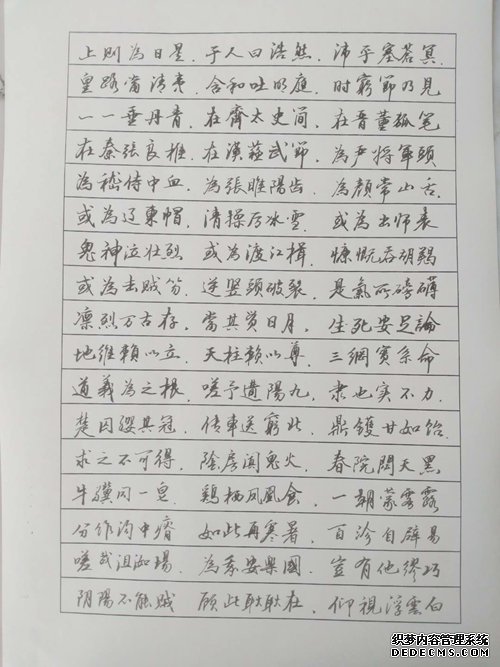 上则為日星，于人曰浩然，沛乎塞苍冥，
皇路當清夷，含和吐明庭，时窮節乃見
一一垂丹青，在齊太史简，在晋董狐笔
在秦张良椎，在漢蘇武節，為严将軍頭
為嵇侍中血，為張睢陽齿，為顏常山舌
或為辽東帽，清操厉冰雪，或為出师表
鬼神泣壮烈　或為渡江楫，慷慨吞胡羯
或為击贼笏，逆竖頭破裂，是氣所磅礴
凛烈万古存，當其贯日月，生死安足論
地维賴以立，天柱賴以尊，三綱實系命
道義為之根，嗟予遘陽九，隶也实不力
楚囚纓其冠，传車送窮北，鼎鑊甘如飴
求之不可得，陰房闃鬼火，春院閟天黑
牛驥同一皂，鶏栖凤凰食，一朝蒙雾露
分作沟中瘠　如此再寒暑，百沴自辟易
嗟哉沮洳場，為我安樂國，豈有他缪巧
阴陽不能贼　顾此耿耿在，仰視浮雲白
织梦内容管理系统
DEDECMS.COM